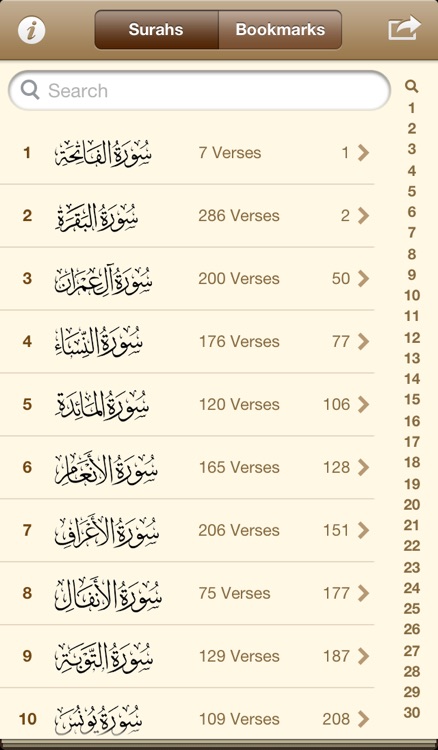 Surahs Bookmarks
Search
1 سُورَةُ الفَاتِحَة 7 Verses 1
2 سُورَةُ البَقَرَة 286 Verses 2
3 سُورَةُ آلِ عِمْرَان 200 Verses 50
4 سُورَةُ النِّسَاء 176 Verses 77
5 سُورَةُ المَائِدَة 120 Verses 106
6 سُورَةُ الأَنْعَام 165 Verses 128
7 سُورَةُ الأَعْرَاف 206 Verses 151
8 سُورَةُ الأَنفَال 75 Verses 177
9 سُورَةُ التَّوْبَة 129 Verses 187
10 سُورَةُ يُونُس 109 Verses 208
1
2
3
4
5
6
7
8
9
10
11
12
13
14
15
16
17
18
19
20
21
22
23
24
25
26
27
28
29
30